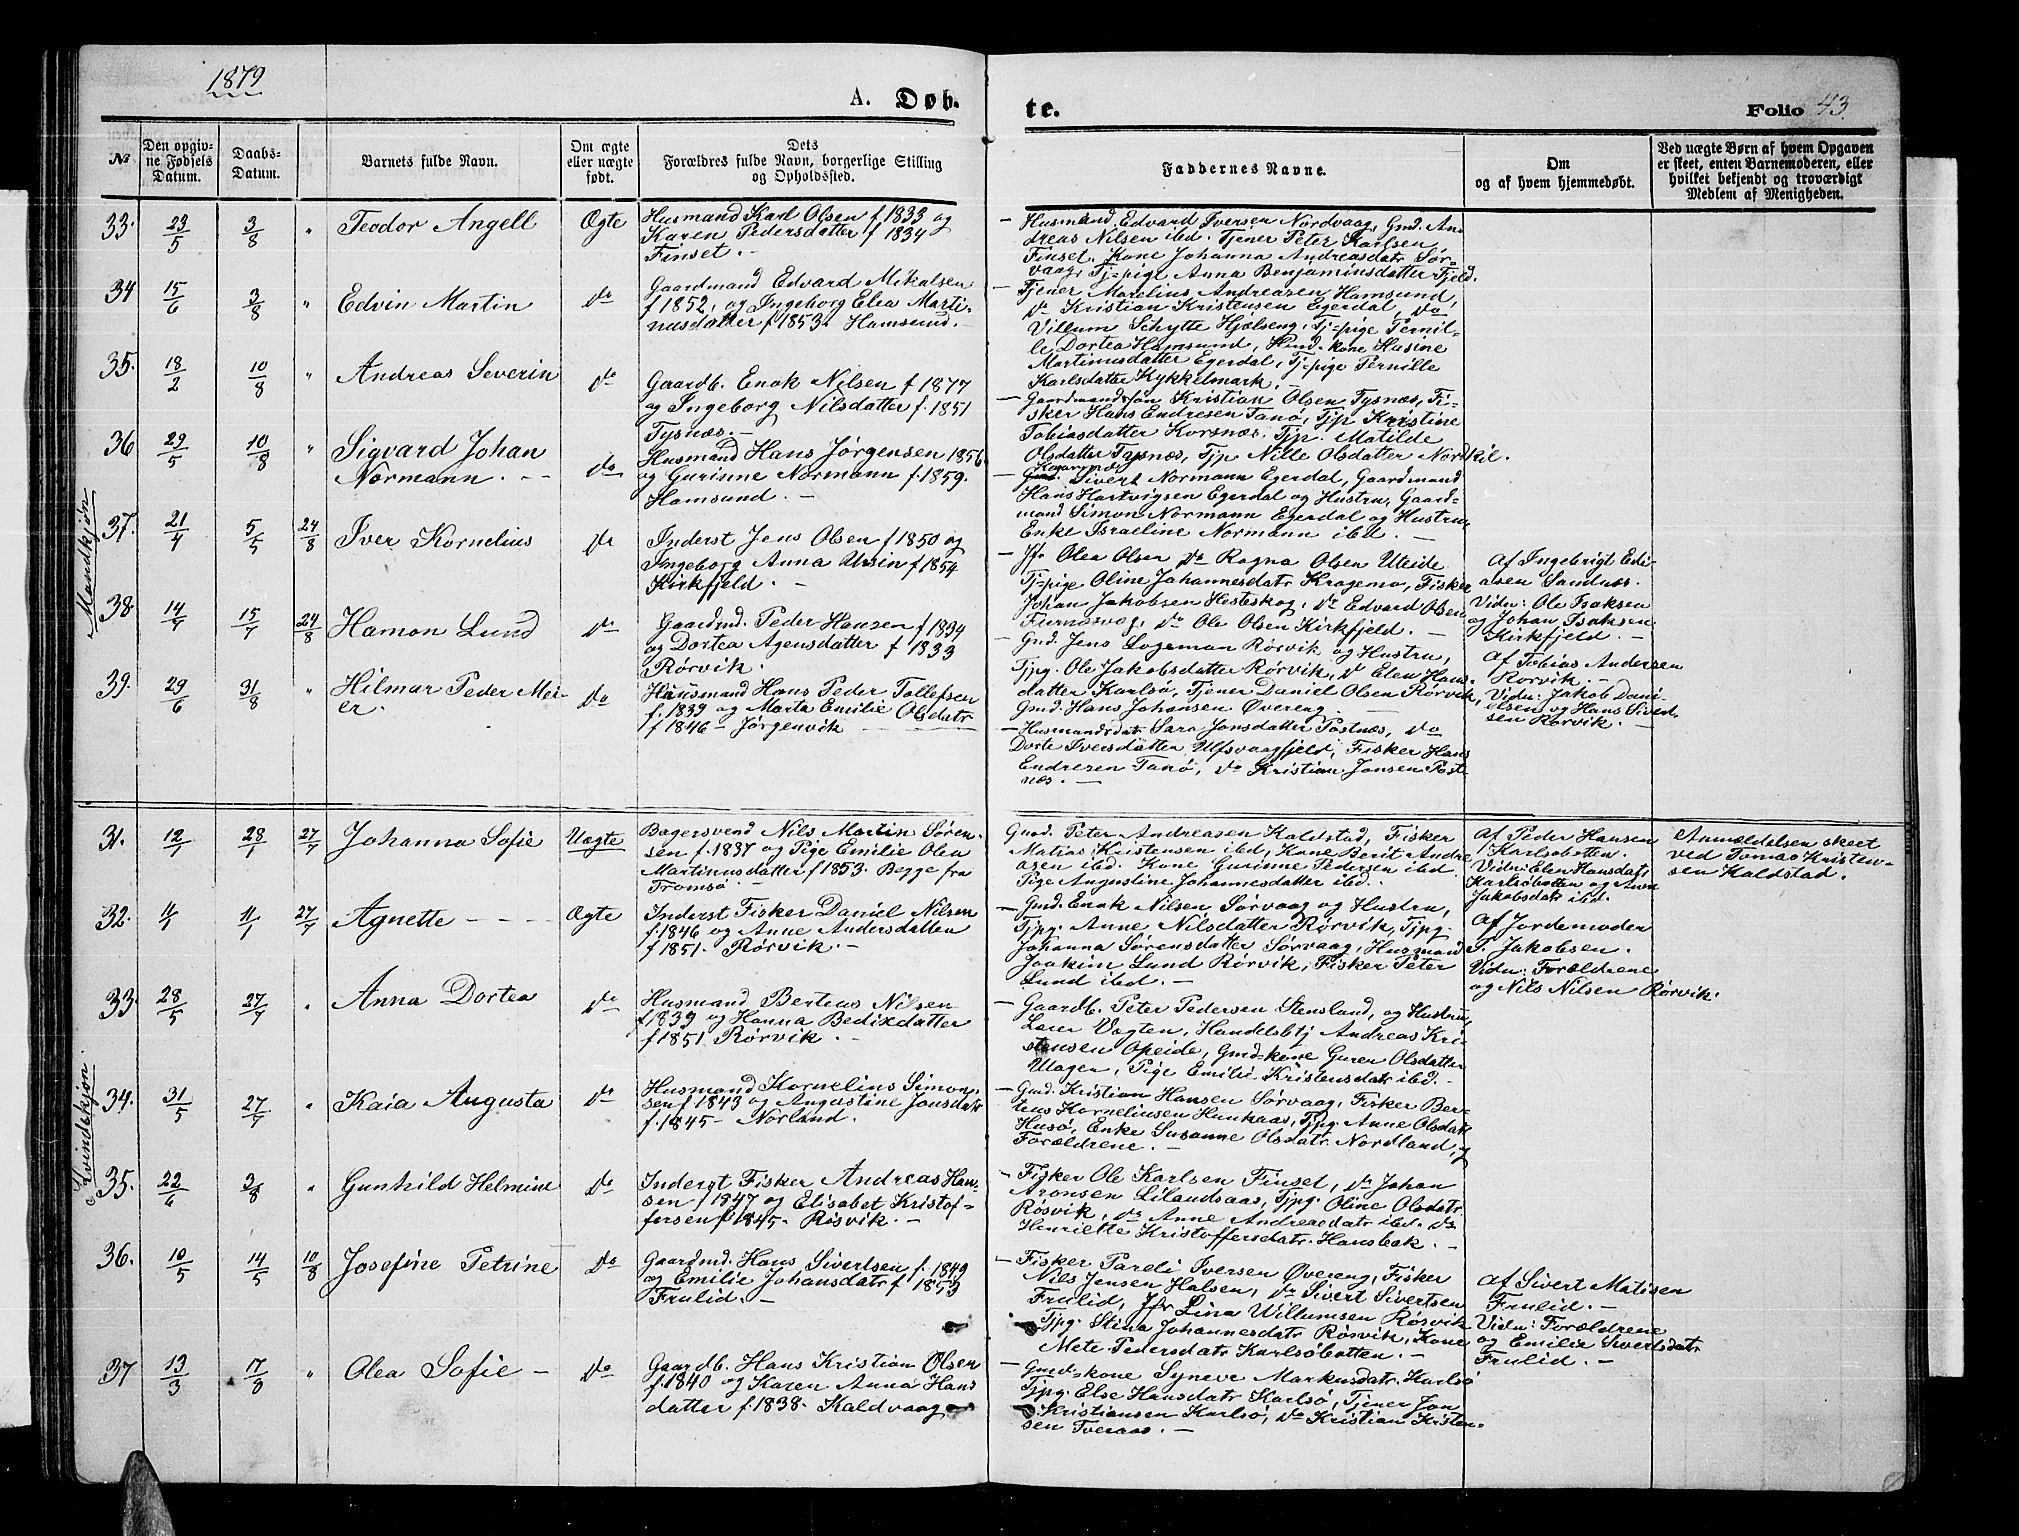 1879
A. Døb-
te.
Folio 43
No
Den opgiv-
ne Fødsels
Datum.
Daabs-
Datum.
Barnets fulde Navn.
Om ægte
eller uægte
født.
Dets
Forældres fulde Navn, borgerlige Stilling
og Opholdssted.
Faddernes Navne.
Om
og af hvem hjemmedøbt.
Ved uægte Børn af hvem Opgaven
er skeet, enten Barnemoderen, eller
hvilket bekjendt og troværdigt
Medlem af Menigheden.
Mandkjøn
33. 23/5 3/8 " Teodor Angell Ægte
Husmand Karl Olsen f 1833 og
Karen Pedersdatter f 1834
Finset. -
- Husmand Edvard Iversen Nordvaag, Gmd. An
dreas Nilsen ibd. Tjener Peter Karlsen
Finset. Kone Johanna Andreasdatr Sør-
vaag, Tj-pige Anna Benjaminsdatter Fjeld.
34 15/6 3/8 " Edvin Martin do
Gaardmand Edvard Mikalsen
f 1852, og Ingeborg Elea Marti-
nusdatter f 1853. Hamsund. -
- Tjener Marelius Andreasen Hamsund,
do Kristian Kristensen Egerdal, do
Villum Schytte Hjelseng, Tj-pige Pernil-
le Dortea Hamsund, Hmd-kone Husine
Martinusdatter Egerdal, Tj-pige Pernille
Karlsdatter Kykkelmark. -
35. 18/2 10/8 " Andreas Severin do
Gaardb. Enok Nilsen f 1877
og Ingeborg Nilsdatter f. 1851
Tysnæs. -
- Gaardmandssøn Kristian Olsen Tysnæs, Fi-
sker Hans Endresen Tanø, Tjp Kristine
Tobiasdatter Korsnæs, Tjp. Matilde
Olsdatter Tysnæs, Tjp Nille Olsdatter Nordkil.
36 29/5 10/8 " Sigvard Johan
Normann. - - do
Husmand Hans Jørgensen 1856
og Gurinne Normann f. 1859.
Hamsund. -
Sivert Normann Egerdal, Gaardmand
Hans Hartvigsen Egerdal og Hustru, Gaard-
mand Simon Normann Egerdal og Hustru,
Enke Israeline Normann ibd. -
37. 21/4 5/5 24/8 Iver Kornelius do
Inderst Jens Olsen f 1850 og
Ingeborg Anna Ursin f 1854
Kirkfjeld. -
- Jfr Olea Olsen do Ragna Olsen Uteide
Tj-pige Oline Johannesdatr Kragemo, Fisker
Johan Jakobsen Hesteskog, do Edvard Olsen
do Ole Olsen Kirkfjeld. -
af Ingebrigt Edi-
asen Sandnæs.
Vidn: Ole Isaksen
og Johan Isaksen
Kirkfjeld. -
38. 14/7 15/7 24/8 Hamon Lund do
Gaardmd. Peder Hansen f 1834
og Dortea Agensdatter f 1833
Rørvik.
- Gmd. Jens Logeman Rørvik og Hustru,
Tjpg. Ole Jakobsdatter Rørvik, do Elen Hans-
datter Karlsø, Tjener Daniel Olsen Rørvik,
Gmd. Hans Johansen Øvereng.
af Tobias Andersen
Rørvik. -
Vidn: Jakob Dani-
elsen og Hans Siverd-
sen Rørvik. -
39. 29/6 31/8 " Hilmar Peder Mei-
er. do
Husmand Hans Peder Tollefsen
f. 1839 og Marta Emilie Olsdatr
f 1846 - Jørgenvik
- Husmandsdatr Sara Jonsdatter Postnæs, do
Dorte Iversdatter Ulfsvaagfjeld, Fisker Hans
Endresen Tanø, do Kristian Jonsen Post-
næs. -
Kvindekjøn.
31. 12/1 28/1 27/7 Johanna Sofie Uægte
Bagersvend Nils Martin Søren-
sen f. 1837 og Pige Emilie Olea
Martinusdatter f 1853. Begge fra
Tromsø.
Gmd. Peter Andreasen Kaldstad, Fisker
Matias Kristensen ibd, Kone Berit Andre
asen ibd. Kone Gurinne Pedersen ibd.
Pige Augustine Johannesdatter ibd.
af Peder Hansen
Karlsøbotten.
Vidn: Elen Hansdatr
Karlsøbotten og Anna
Jakobsdatr ibd.
Anmeldelsen skeet
ved Tomas Kristen-
sen Kaldstad.
32. 4/1 11/1 27/7 Agnette - - - - Ægte
Inderst Fisker Daniel Nilsen
f. 1846 og Anne Andersdatter
f 1851. Rørvik. -
- Gmd. Enok Nilsen Sørvaag og Hustru,
Tjpg. Anne Nilsdatter Rørvik, Tjpg.
Johanna Sørensdatter Sørvaag, Husmand
Joakim Lund Rørvik, Fisker Peter
Lund ibd. -
af Jordemoder
T. Jakobsen.
Vidn: Forældrene
og Nils Nilsen Rørvik.
33. 28/5 27/7 " Anna Dortea do
Husmand Berteus Nilsen
f 1839 og Hanna Bedixdatter
f 1851 Rørvik. -
- Gaardb. Peter Pedersen Stensland, og Hustru,
Lærer Vogten, Handelsbtj Andreas Kri-
stensen Opeide, Gmd-kone Gurer Olsdatter
Ulagen, Pige Emilie Kristensdatr ibd. -
34. 31/5 27/7 " Kaia Augusta do
Husmand Kornelius Simon-
sen f 1843 og Augustine Jonsdatr
f. 1845 - Norland.
- Gmd. Kristian Hansen Sørvaag, Fisker Ber-
teus Kornelinsen Haukaas, Tjpg. Anne Olsdatr
Husø, Enke Susanne Olsdatr. Nordland, og
Forældrene. -
35. 22/6 3/8 " Gunhild Helmine do
Inderst Fisker Andreas Han-
sen f 1847 og Elisabet Kristof-
fersen f 1845. Røsvik. -
- Fisker Ole Karlsen Finset, do Johan
Aronsen Lilandsaas, Tjpg. Oline Olsdatr.
Røsvik, do Anne Andreasdatr ibd. do
Henriette Kristoffersdatr. Hansbak. -
36. 10/5 14/5 10/8 Josefine Petrine do
Gaardmd. Hans Sivertsen f. 1849
og Emilie Johansdatr f 1853
Frulid. -
- Fisker Pareli Iversen Øvereng, Fisker
Nils Jensen Halsen, do Sivert Sivertsen
Frulid, Jfr Lina Willumsen Røsvik
Tjpg. Stina Johannesdatr Røsvik, Kone
Mete Pedersdatr Karlsøbotten. -
af Sivert Matisen
Frulid. -
Vidn: Forældrene
og Emilie Sivertsdatr
Frulid. -
37 13/3 17/8 " Olea Sofie - do
Gaardb. Hans Kristian Olsen
f. 1840 og Karen Anna Hans
datter f. 1838. Kaldvaag
- Gmd-kone Syneve Markusdatr. Karlsø
Tjpg. Else Hansdatr Karlsø, Tjener Jon
Kristiansen Karlsø, do Kristian Kristen-
sen Tveraas. -